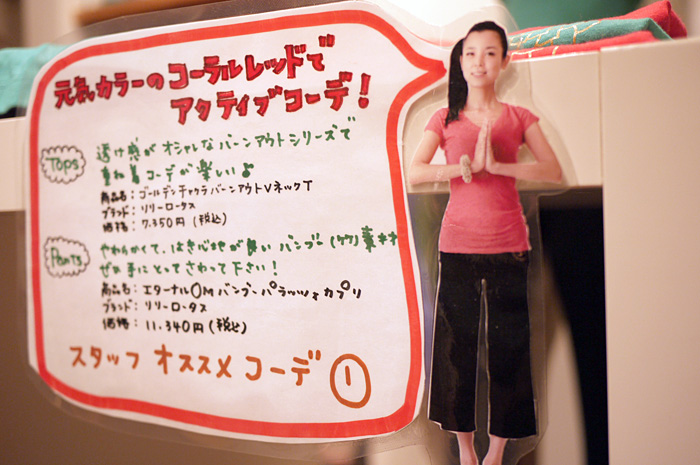 元気カラーのコーラルレッドで
アクティブコーデ!
Tops
透け感がオシャレなバーンアウトシリーズで
重ね着コーデが楽しい♪
商品名:ゴールデンチャクラバーンアウトVネックT
ブランド:リリーロータス
価格:7.350円(税込)
Pants
やわらかくて、はき心地が良いバンブー(竹)素材
ぜひ手にとってさわって下さい!
商品名:エターナルOMバンブーパラッツォカプリ
ブランド:リリーロータス
価格:11.340円(税込)
スタッフオススメコーデ①